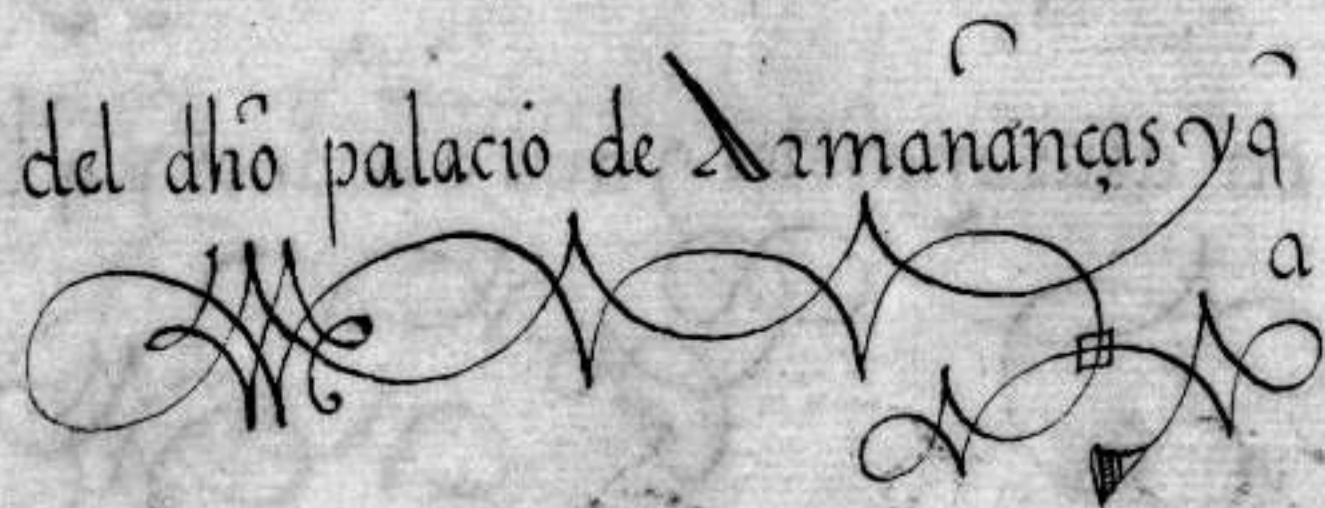 del dhȏ palacio de Armanānças y q̑
a